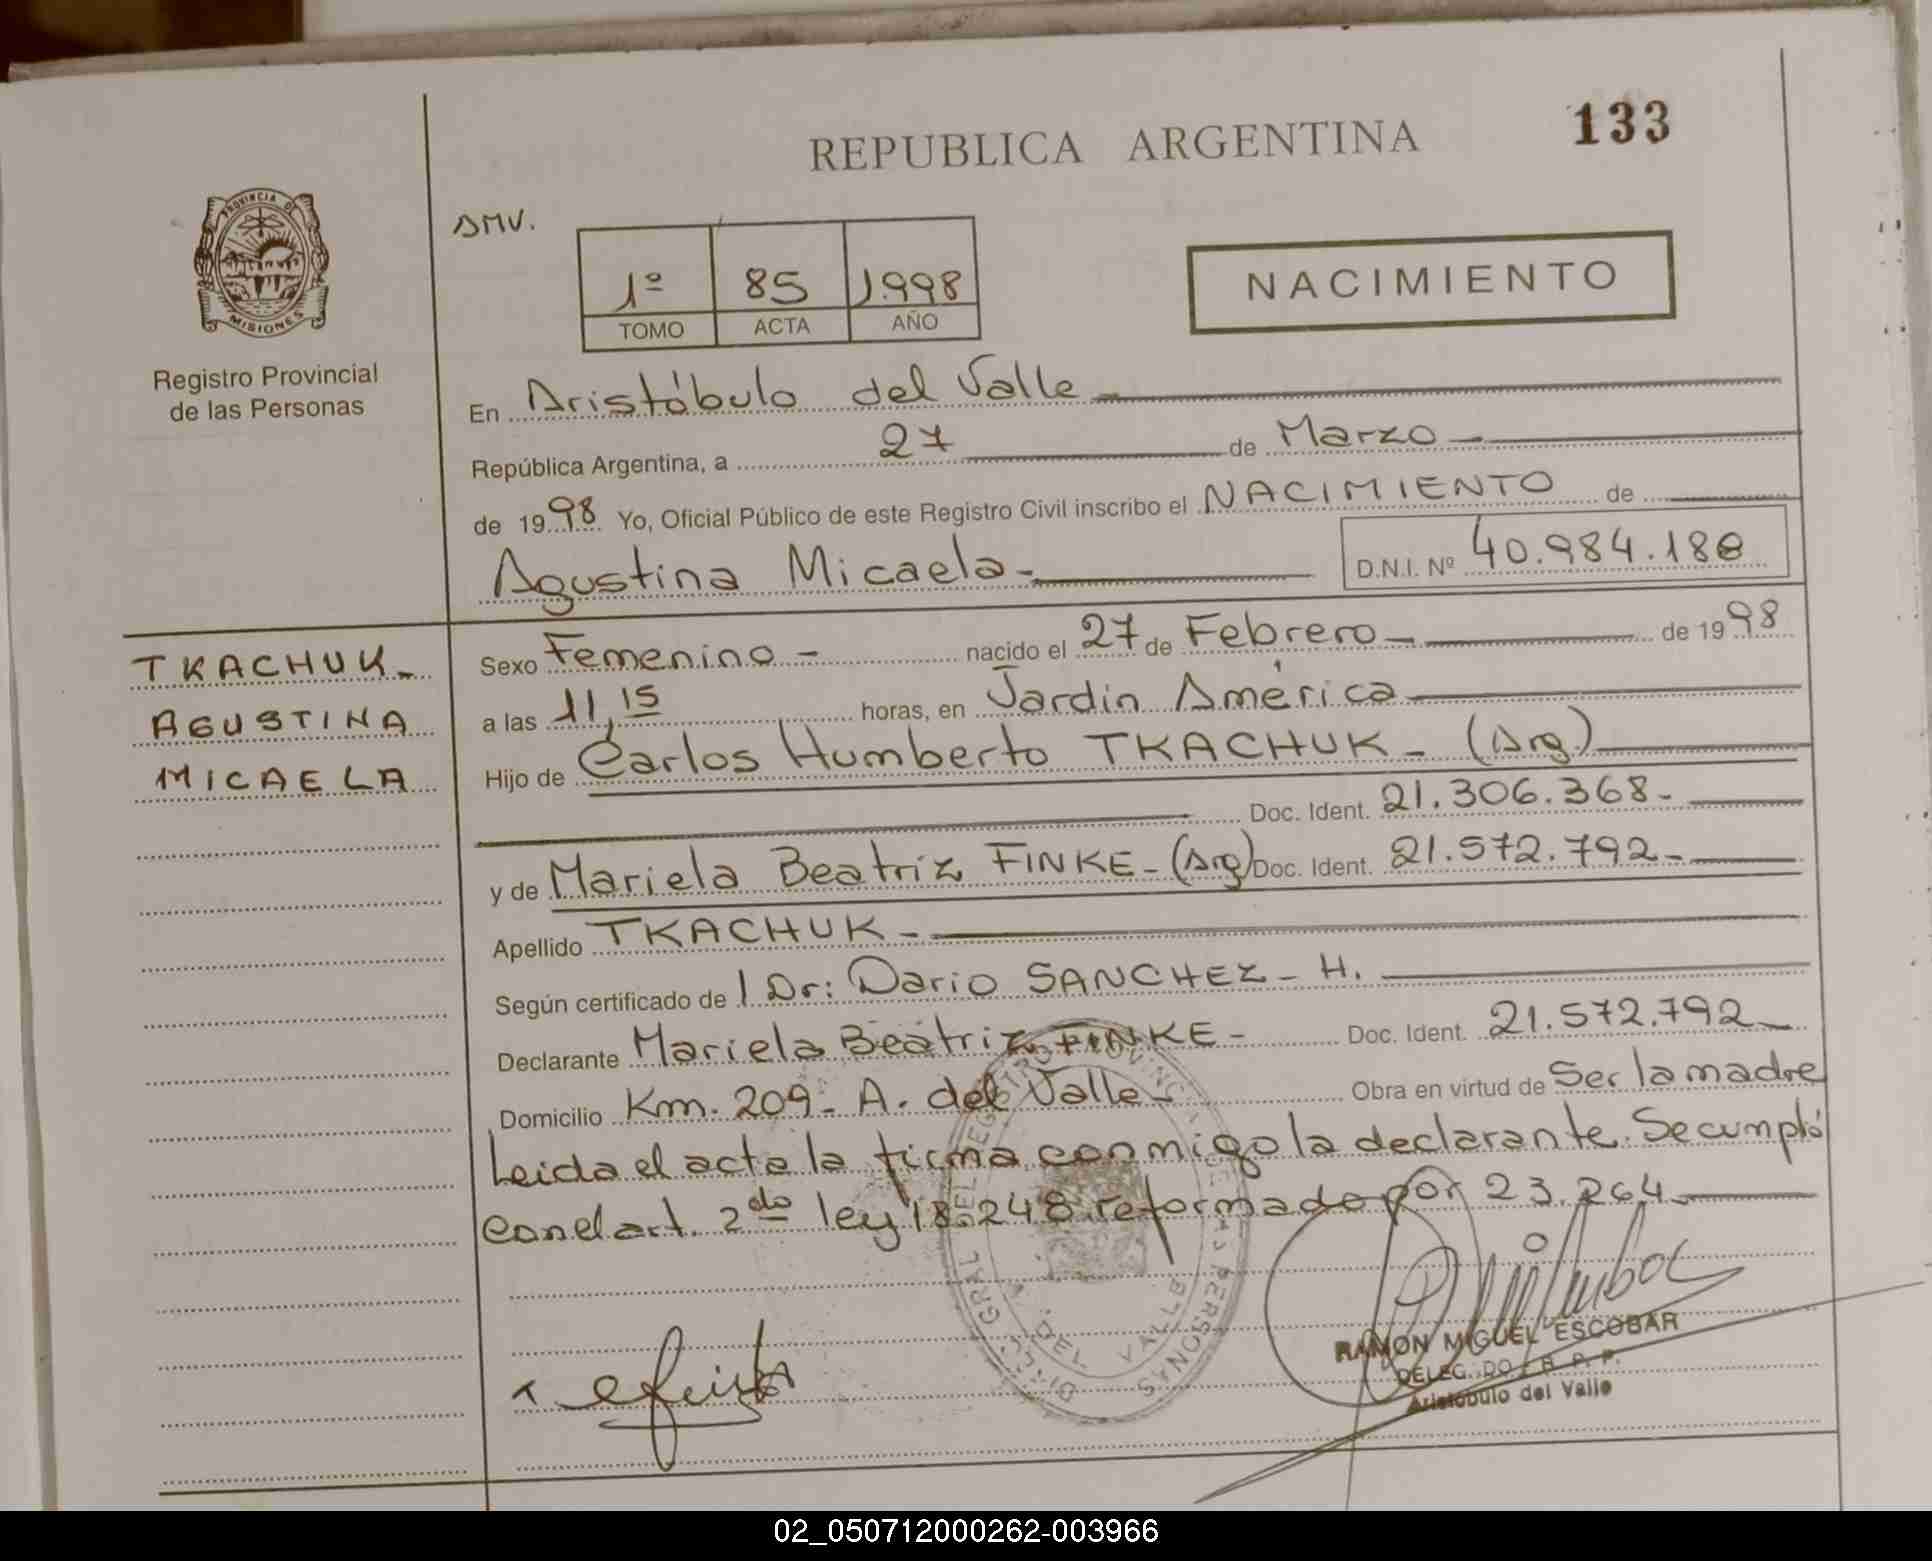 133
REPUBLICA ARGENTINA
PROVINCIA DE
MISIONES
Registro Provincial
de las Personas
AMV.
1º 85 1.998
TOMO ACTA AÑO
NACIMIENTO
En Aristóbulo del Valle
República Argentina, a 27 de Marzo
de 1998 Yo, Oficial Público de este Registro Civil inscribo el NACIMIENTO de
Agustina Micaela D.N.I. Nº 40.984.188
TKACHUK
AGUSTINA
MICAELA
Sexo Femenino - nacido el 27 de Febrero de 1998
a las 11,15 horas, en Jardín América
Hijo de Carlos Humberto TKACHUK - (Arg)
Doc. Ident. 21.306.368
y de Mariela Beatriz FINKE - (Arg) Doc. Ident. 21.572.792
Apellido TKACHUK
Según certificado de l Dr: Dario SANCHEZ - H.
Declarante Mariela Beatriz FINKE - Doc. Ident. 21.572.792
Domicilio Km. 209 - A. del Valle - Obra en virtud de Ser la madre
Leida el acta la firma conmigo la declarante. Se cumpló
con el art. 2do ley 18.248 reformado por 23.264
RAMON MIGUEL ESCOBAR
Aristobulo del Valle
02_050712000262-003966